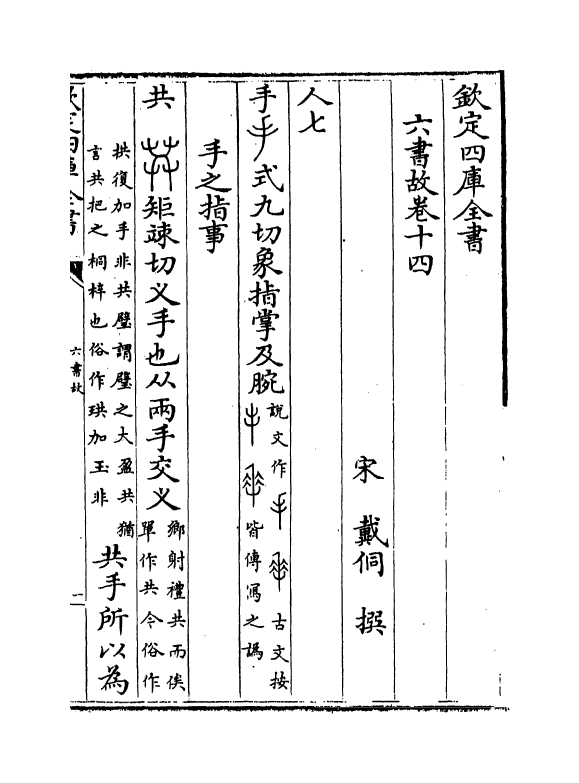 欽定四庫全書
六書故卷十四
宋 戴侗 撰
人七
手 式九切象指掌及腕
說文作 古文按
皆傳寫之譌
手之指事
共 矩竦切义手也从兩手交义
鄉射禮共而俟
單作共今俗作
拱復加手非共璧謂璧之大盈共猶
言共把之桐梓也俗作珙加玉非
共手所以為
欽定四庫全書
六書故
二